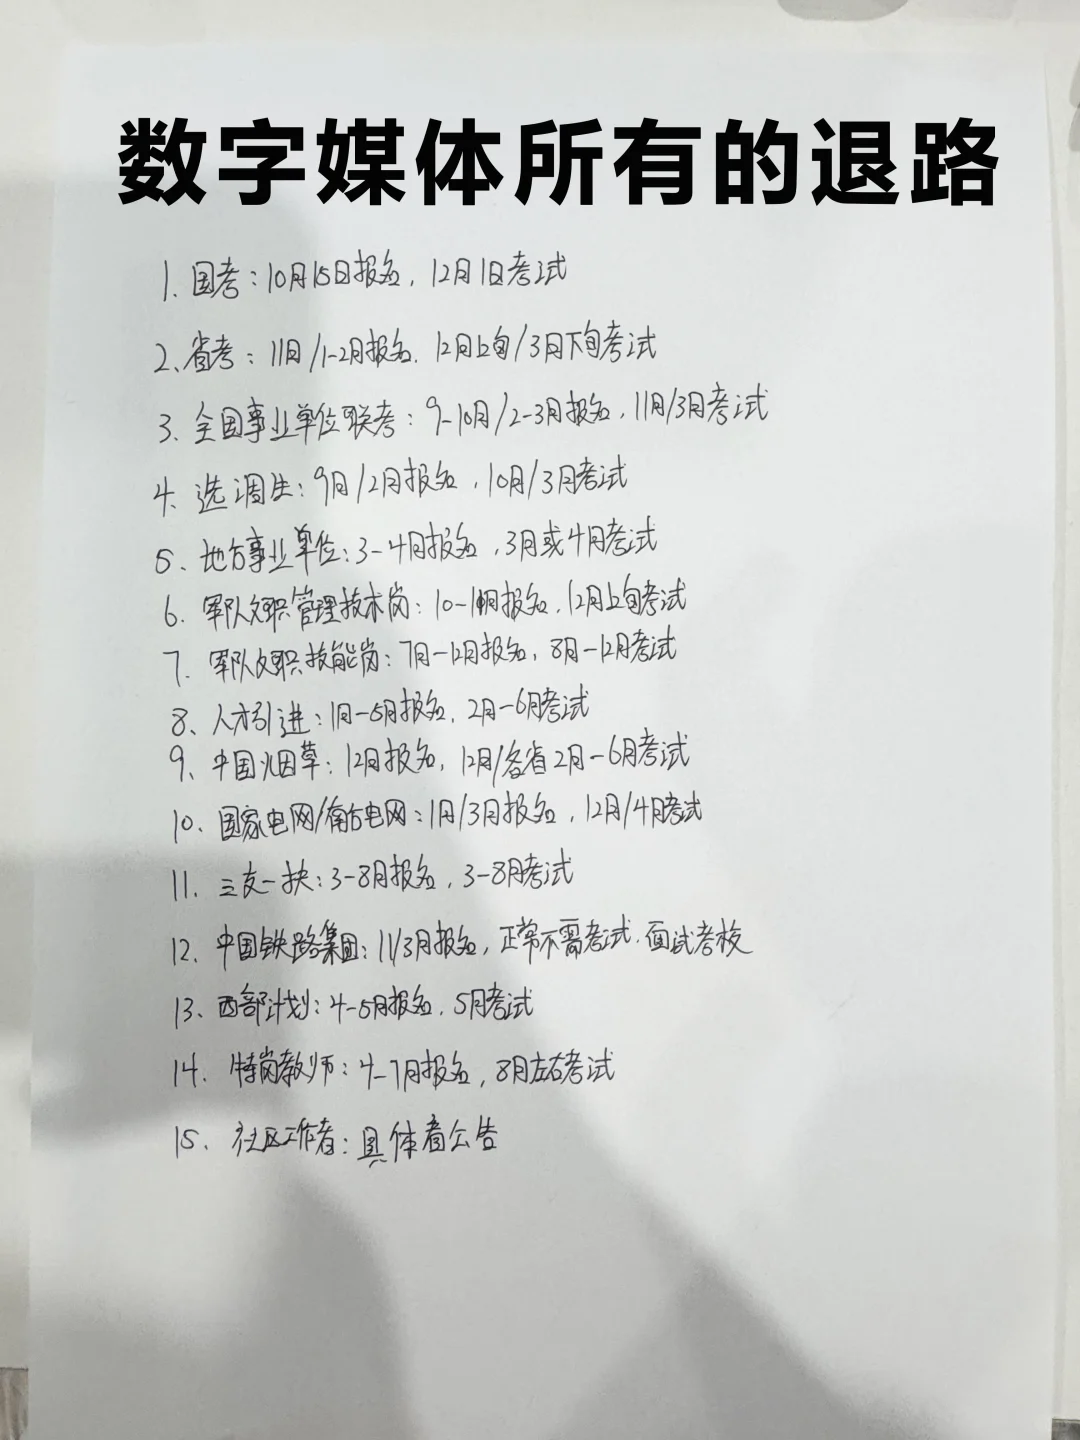 数字媒体所有的退路
1. 国考：10月15日报名，12月1日考试
2、省考：11月/1-2月报名，12月上旬/3月下旬考试
3. 全国事业单位联考：9-10月/2-3月报名，11月/3月考试
4、选调生：9月/2月报名，10月/3月考试
5、地方事业单位：3-4月报名，3月或4月考试
6. 军队文职管理技术岗：10-11月报名，12月上旬考试
7. 军队文职技能岗：7月-12月报名，8月-12月考试
8、人才引进：1月-5月报名，2月-6月考试
9、中国烟草：12月报名，12月/各省2月-6月考试
10、国家电网/南方电网：1月/3月报名，12月/4月考试
11. 三支一扶：3-8月报名，3-8月考试
12、中国铁路集团：11/3月报名，正常不需考试，面试考核
13、西部计划：4-5月报名，5月考试
14. 特岗教师：4-7月报名，8月左右考试
15、社区工作者：具体看公告